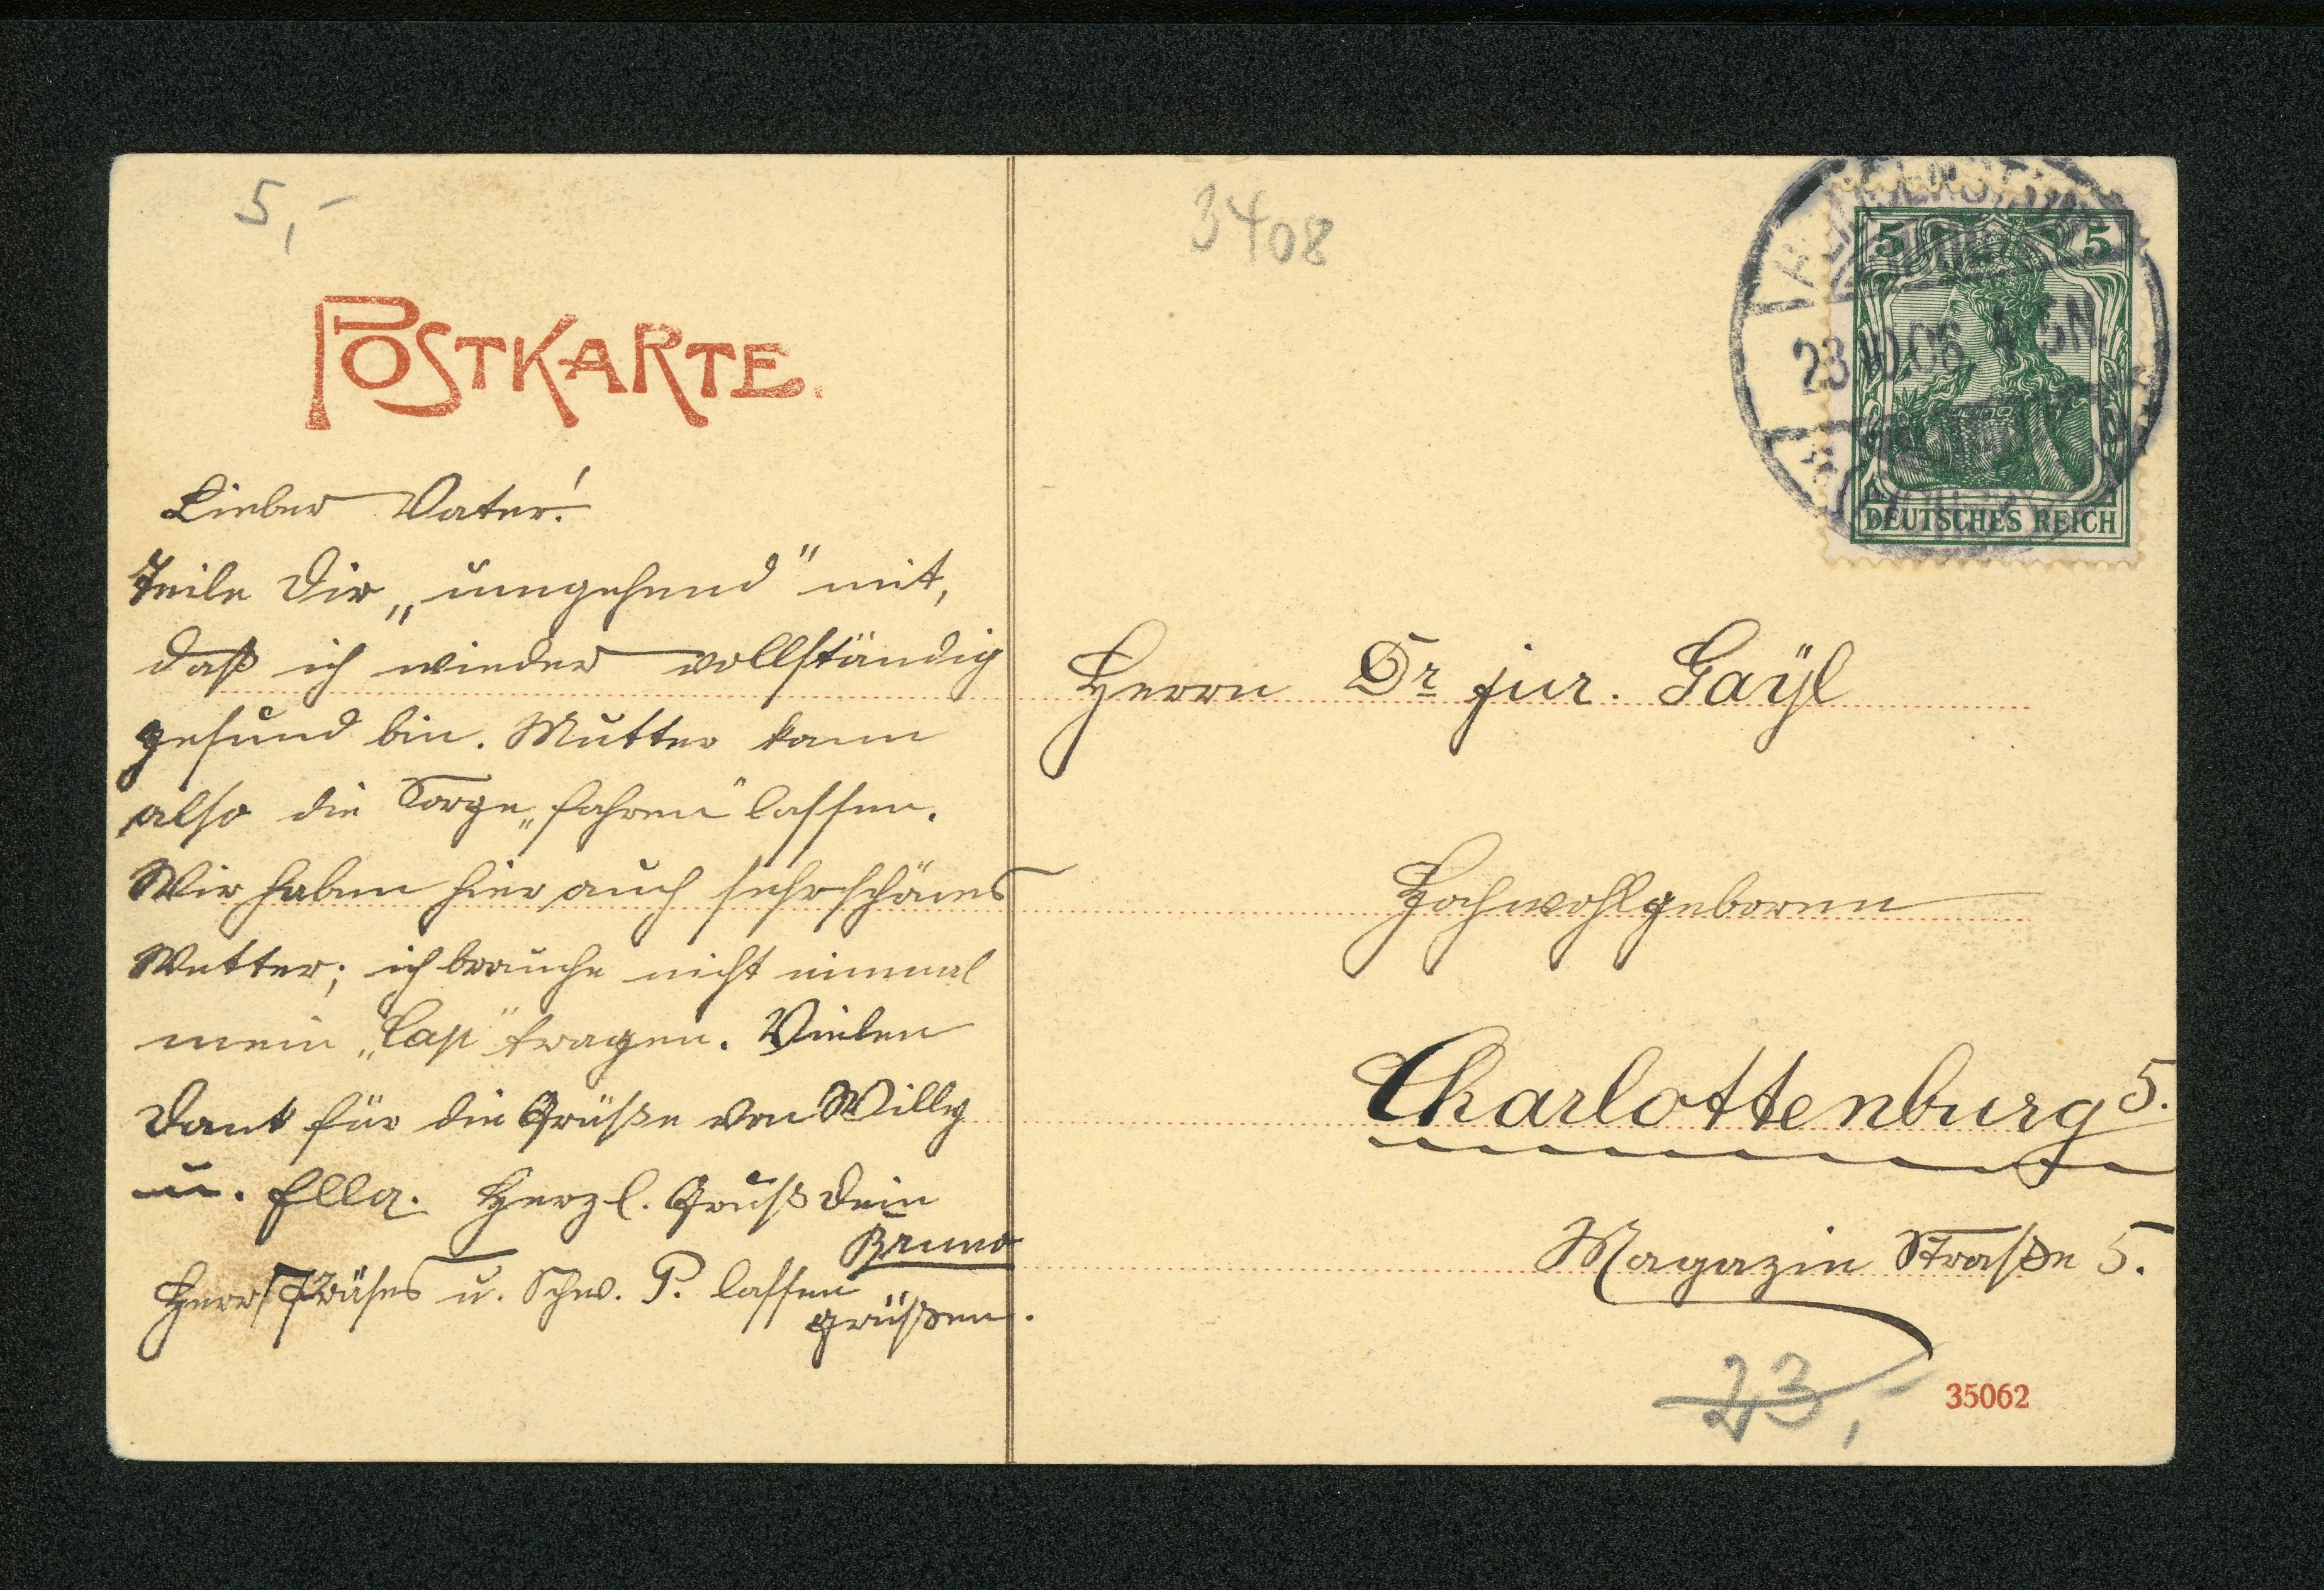 5,-
3408
POSTKARTE.
5 5
23.10.06. 4-5N.
DEUTSCHES REICH
Lieber Vater!
Teile Dir „umgehend" mit,
daß ich wieder vollständig
gesund bin. Mutter kann
also die Sorge „fahren" lassen.
Wir haben hier auch sehr schönes
Wetter; ich brauche nicht einmal
mein „Cap" tragen. Vielen
Dank für die Grüße von Willy
u. Ella. Herzl. Gruß Dein
Bruno
Herr Präses u. Schw. P. lassen
grüßen.
Herrn Dr jur. Gaÿl
Hochwohlgeboren
Charlottenburg 5.
Magazin Straße 5.
23,-
35062